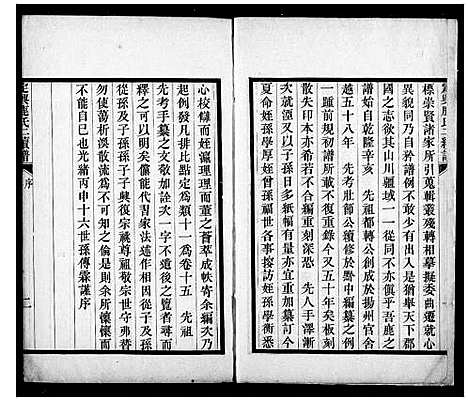 標崇賢諸家所引蒐輯叢殘轉相摹擬委曲遷就心
異貌同乃自矜譜例不敢少有出人是猶舉天下郡
國之志欲其山川疆域一一從同不亦傎乎吾鹿之
譜始自乾隆辛亥 先祖都轉公創成於揚州官舍
越五十八年 先考壯節公續修於黔中編纂之例
一如前規初譜所載不復重錄今又五十年矣板刻
散失印本亦希若不合編重刻深恐 先人手澤漸
次就湮又以子孫日多紙幅有量亦宜重加纂訂今
夏命姪孫學恆福世各事搜訪姪孫學衡悉
心校讎而姪瀛理理而董之薈萃成帙寄余編次乃
起例發凡排比點定為類十一為卷十五 先祖
先考手纂之文敬加詮次一字不遺後之覽者尋而
釋之可以明矣儻能代習家法述作相因從子及孫
從孫及子子子興復宗祧尊祖敬宗世守弗替
勿使蕩析渙散流為不可知之倫是則余所懷懷而
不能自已也光緒丙申十六世孫傳霖謹序
定興鹿氏二續譜
序
二
定興鹿氏二續譜